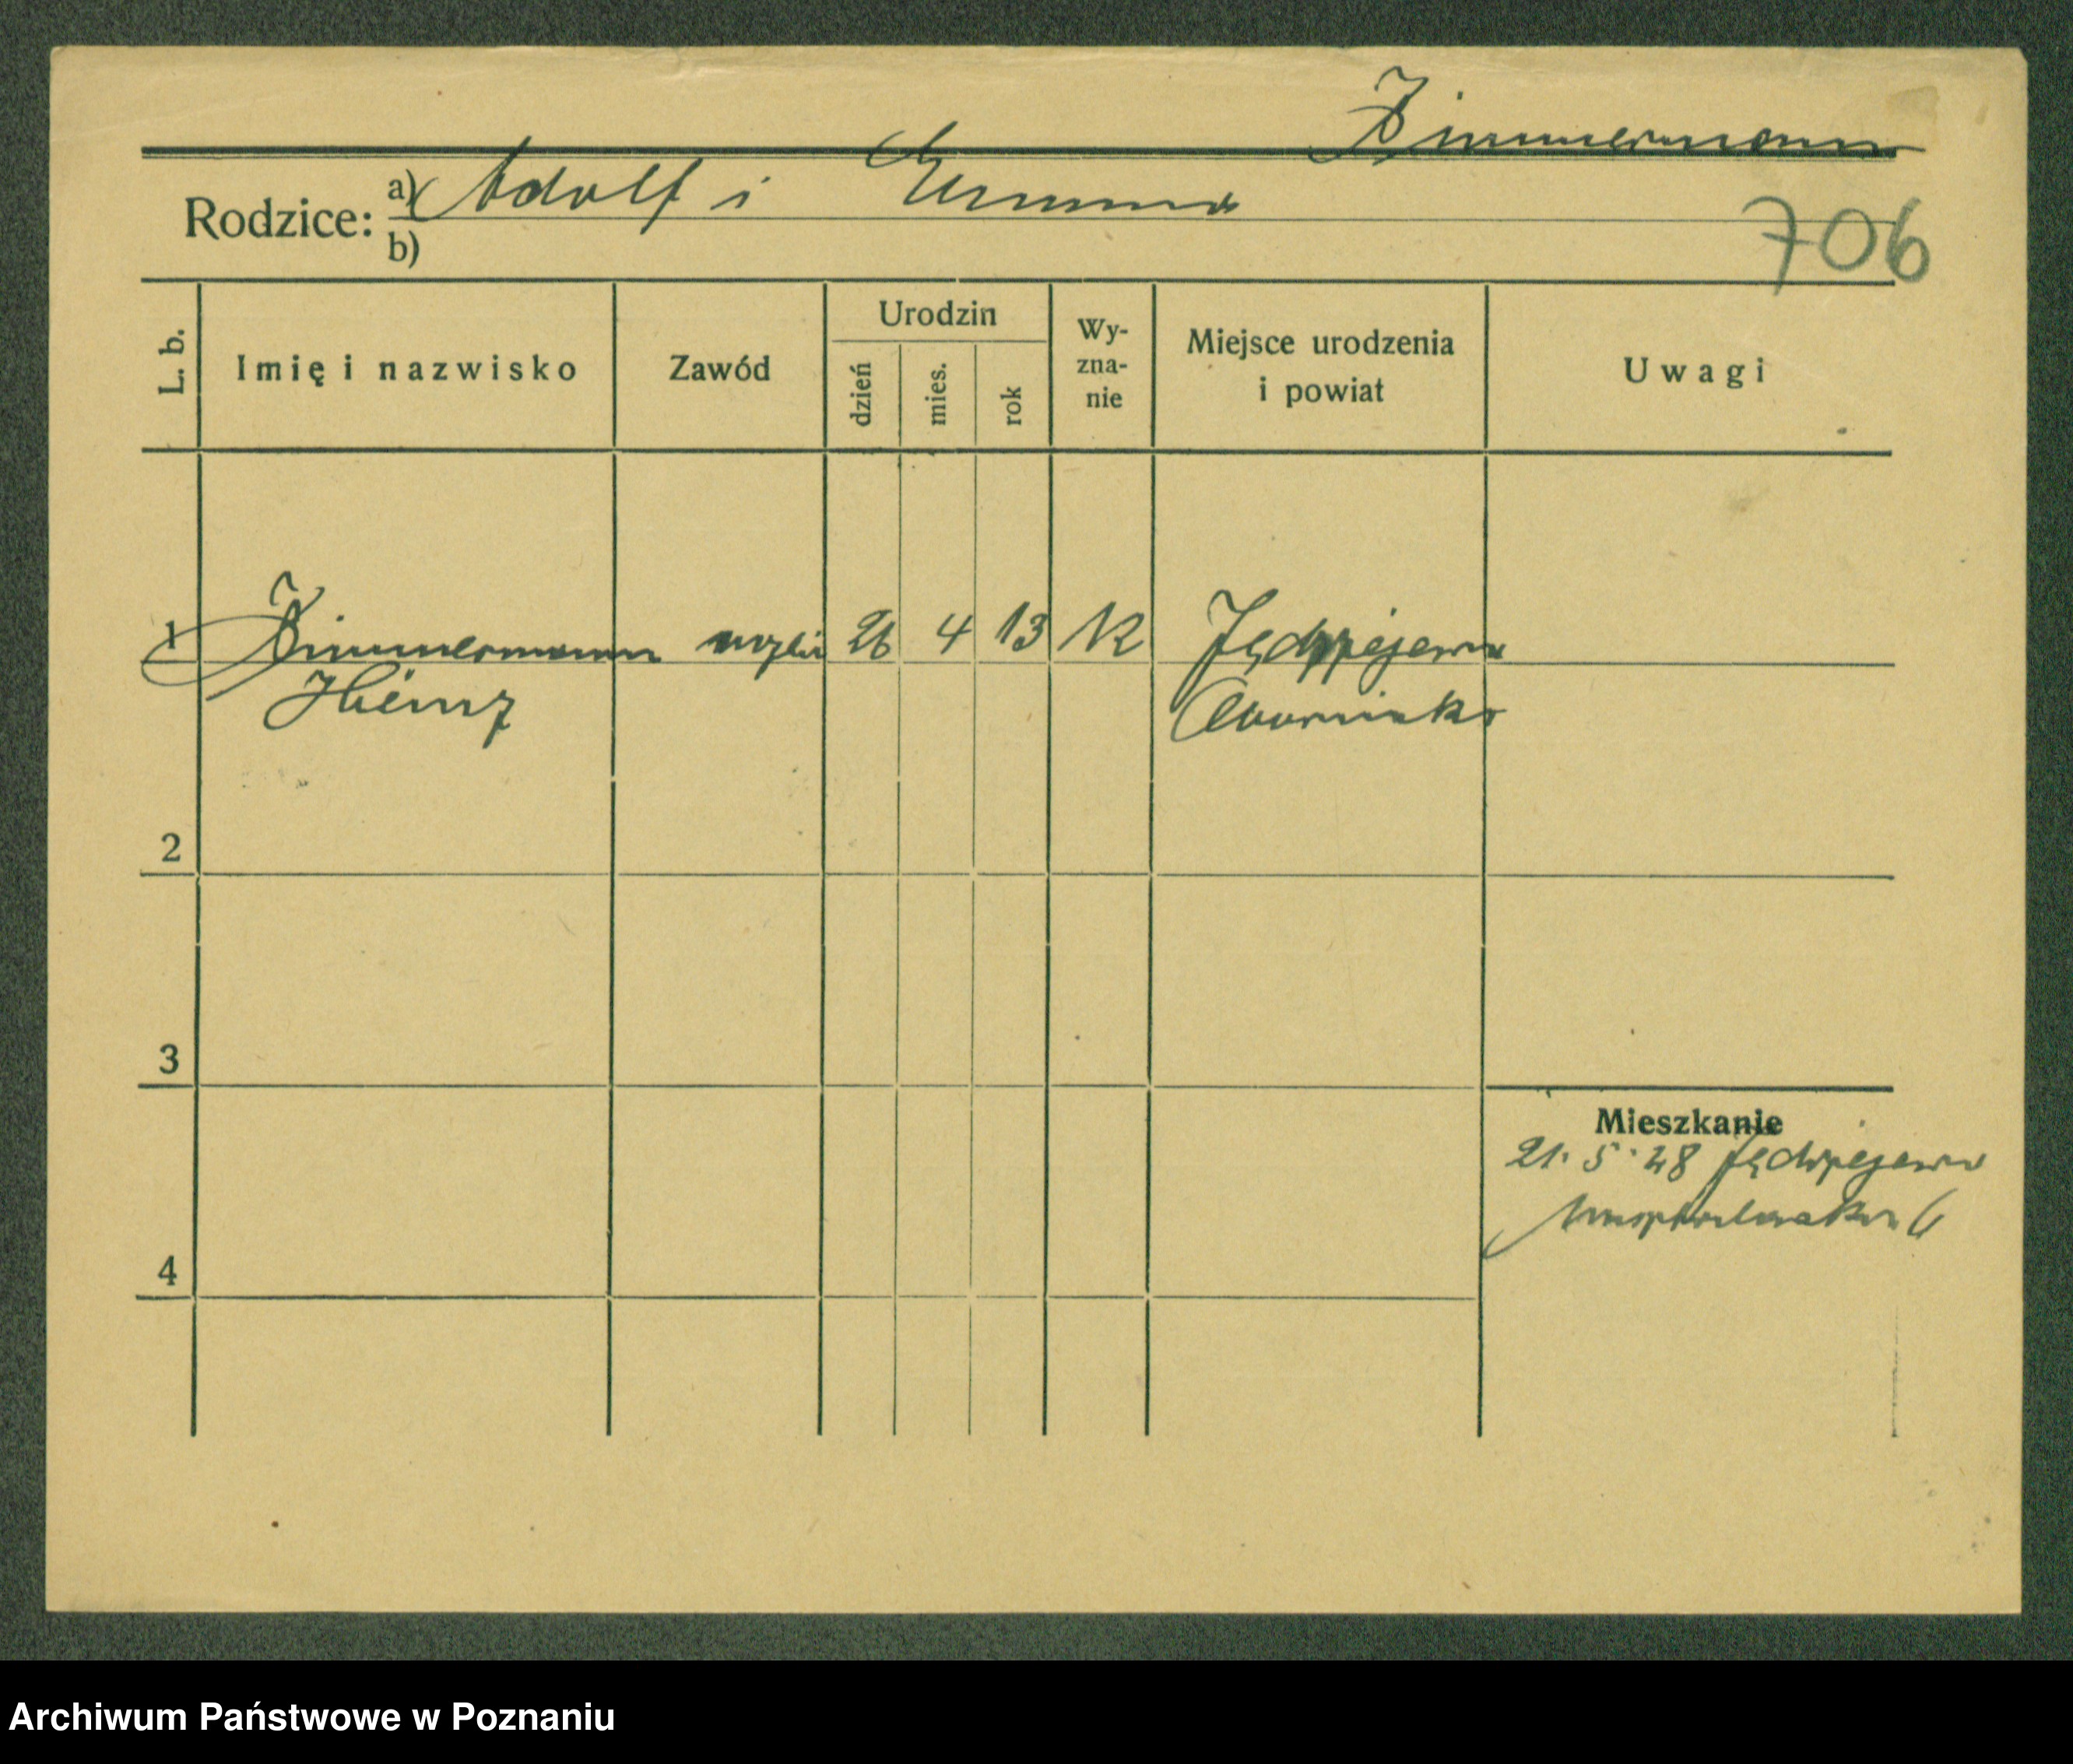 Zimmermann
Rodzice: a) Adolf i Emma
b)
706
L. b.
Imię i nazwisko
Zawód
Urodzin
dzień
mies.
rok
Wy-
zna-
nie
Miejsce urodzenia
i powiat
Uwagi
1 Zimmermann 26 4 13 K Jędrzejewo
Heinz
2
3
Mieszkanie
21. 5. 48 Jędrzejewo
4
Archiwum Państwowe w Poznaniu